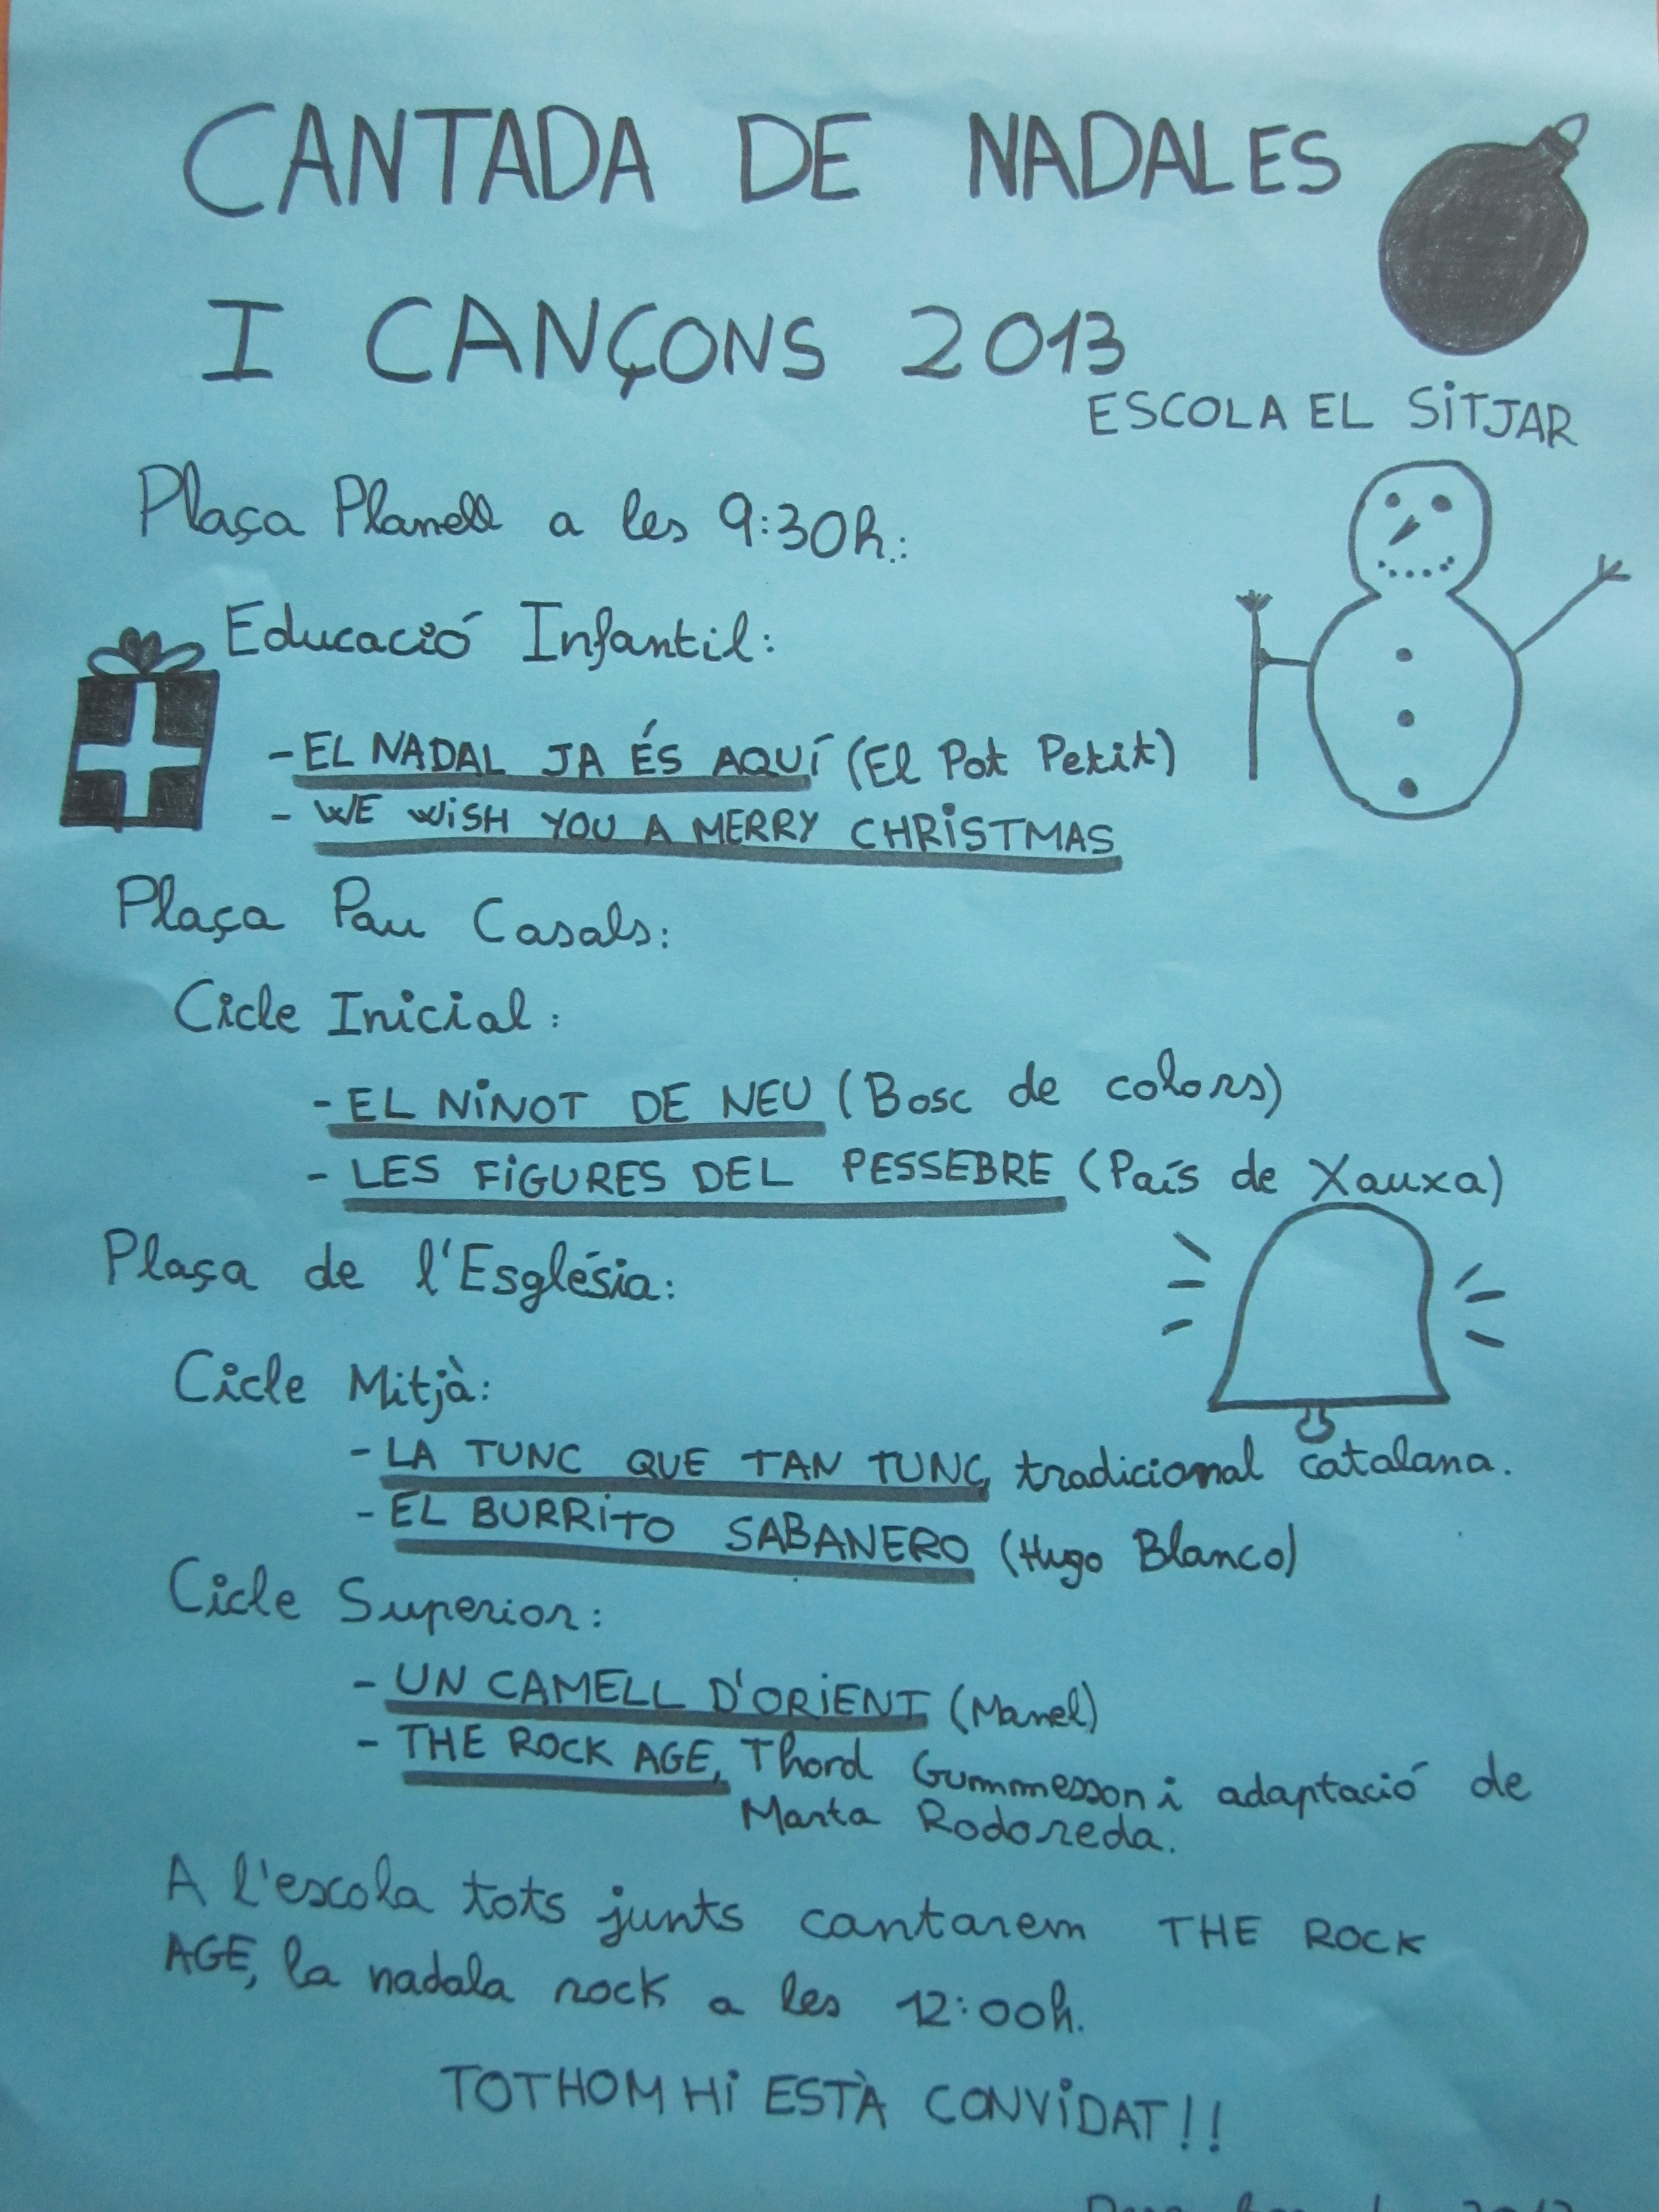 CANTADA DE NADALES
I CANÇONS 2013
ESCOLA EL SITJAR
Plaça Planell a les 9:30h.:
Educació Infantil:
- EL NADAL JA ÉS AQUÍ (El Pot Petit)
- WE WISH YOU A MERRY CHRISTMAS
Plaça Pau Casals:
Cicle Inicial:
- EL NINOT DE NEU (Bosc de colors)
- LES FIGURES DEL PESSEBRE (País de Xauxa)
Plaça de l'Església:
Cicle Mitjà:
- LA TUNC QUE TAN TUNC, tradicional catalana.
- EL BURRITO SABANERO (Hugo Blanco)
Cicle Superior:
- UN CAMELL D'ORIENT (Manel)
- THE ROCK AGE, Thord Gummesson i adaptació de
Marta Rodoreda.
A l'escola tots junts cantarem THE ROCK
AGE, la nadala rock a les 12:00h.
TOTHOM HI ESTÀ CONVIDAT!!